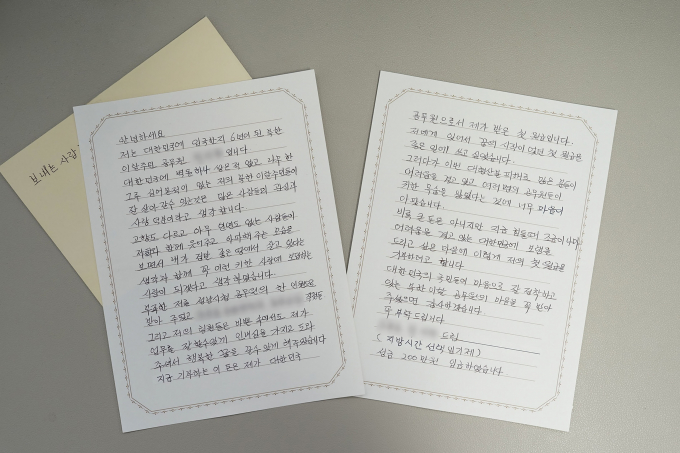 보내는 사람 :
안녕하세요
저는 대한민국에 입국한지 6년이 된 북한
이탈주민 공무원 입니다
대한민국에 벽돌하나 쌓은적 없고 나무 한
그루 심어놓은적 없는 저와 북한 이탈주민들이
잘 살아 갈수 있는것은 많은 사람들의 관심과
사랑 덕분이라고 생각 합니다.
고향도 다르고 아무 인연도 없는 사람들이
저희와 함께 웃어주고 아파해주는 모습을
보면서 내가 정말 좋은 땅에서 살고 있다는
생각과 함께 꼭 이런 귀한 사람에 보답하는
사람이 되겠다고 생각 해왔습니다
부족한 저를 시청 공무원의 한 인원으로
받아 주었고
그리고 저의 팀원들은 바쁜 속에서도 제가
업무를 잘 할수있게 인내심을 가지고 도와
주셔서 행복한 삶을 살수 있게 해주셨습니다
지금 기부하는 이 돈은 제가 대한민국
공무원으로서 제가 받은 첫 월급입니다.
저에게 있어서 꿈의 시작이 었던 첫 월급을
좋은 일에 쓰고 싶었습니다.
그러다가 이번 대형산불 많은 분들이
어려움을 겪고 있고 여러명의 공무원들이
귀한 목숨을 잃었다는 것에 너무 마음이
아팠습니다
비록 큰 돈은 아니지만 지금 힘들고 조금이나마
어려움을 겪고 있는 대한민국에 보탬을
드리고 싶은 마음에 이렇게 저의 첫 월급을
기부하려고 합니다.
대한민국의 국민들에 마음으로 잘 정착하고
있는 북한 이탈 공무원의 마음을 꼭 받아
주셨으면 감사하겠습니다
꼭 부탁드립니다
드림
( 지방시간 선택 임기제 )
성금 200만원 입금하였습니다